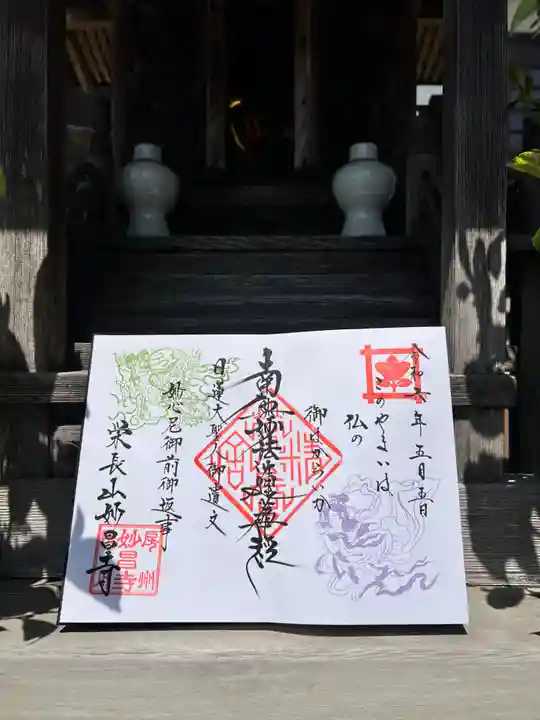 令和六年五月五日
このやまいは
仏の
御はからいか
南無妙法蓮華経
日蓮大聖人御遺文
妙心尼御前御返事
栄長山妙昌寺
尾州
妙昌寺